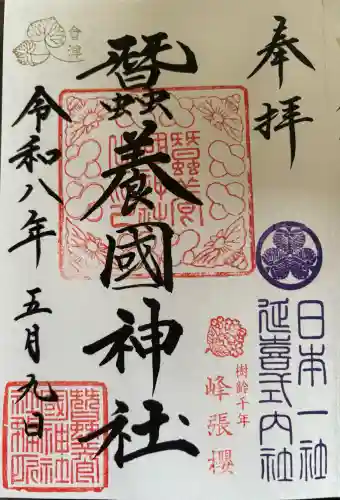 奉拝
日本一社
延喜式内社
樹齢千年
峰張櫻
蠶養國神社
會津
令和八年
五月九日